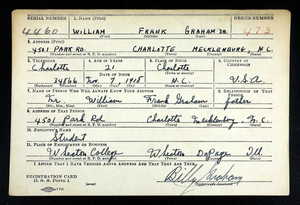 SERIAL NUMBER 1. NAME (Print) ORDER NUMBER
4460 WILLIAM FRANK GRAHAM JR. 473
2. ADDRESS (Print)
4501 PARK RD. CHARLOTTE MECKLENBURG, N.C.
3. TELEPHONE 4. AGE IN YEARS 5. PLACE OF BIRTH 6. COUNTRY OF CITIZENSHIP
Charlotte 21 Charlotte
DATE OF BIRTH
Nov. 7 1918 N.C. U.S.A
7. NAME OF PERSON WHO WILL ALWAYS KNOW YOUR ADDRESS 8. RELATIONSHIP OF THAT PERSON
Mr. William Frank Graham father
9. ADDRESS OF THAT PERSON
4501 Park Rd Charlotte Mecklenburg, N.C.
10. EMPLOYER'S NAME
Student
11. PLACE OF EMPLOYMENT OR BUSINESS
Wheaton College Wheaton DuPage Ill
I AFFIRM THAT I HAVE VERIFIED ABOVE ANSWERS AND THAT THEY ARE TRUE.
REGISTRATION CARD Billy Graham